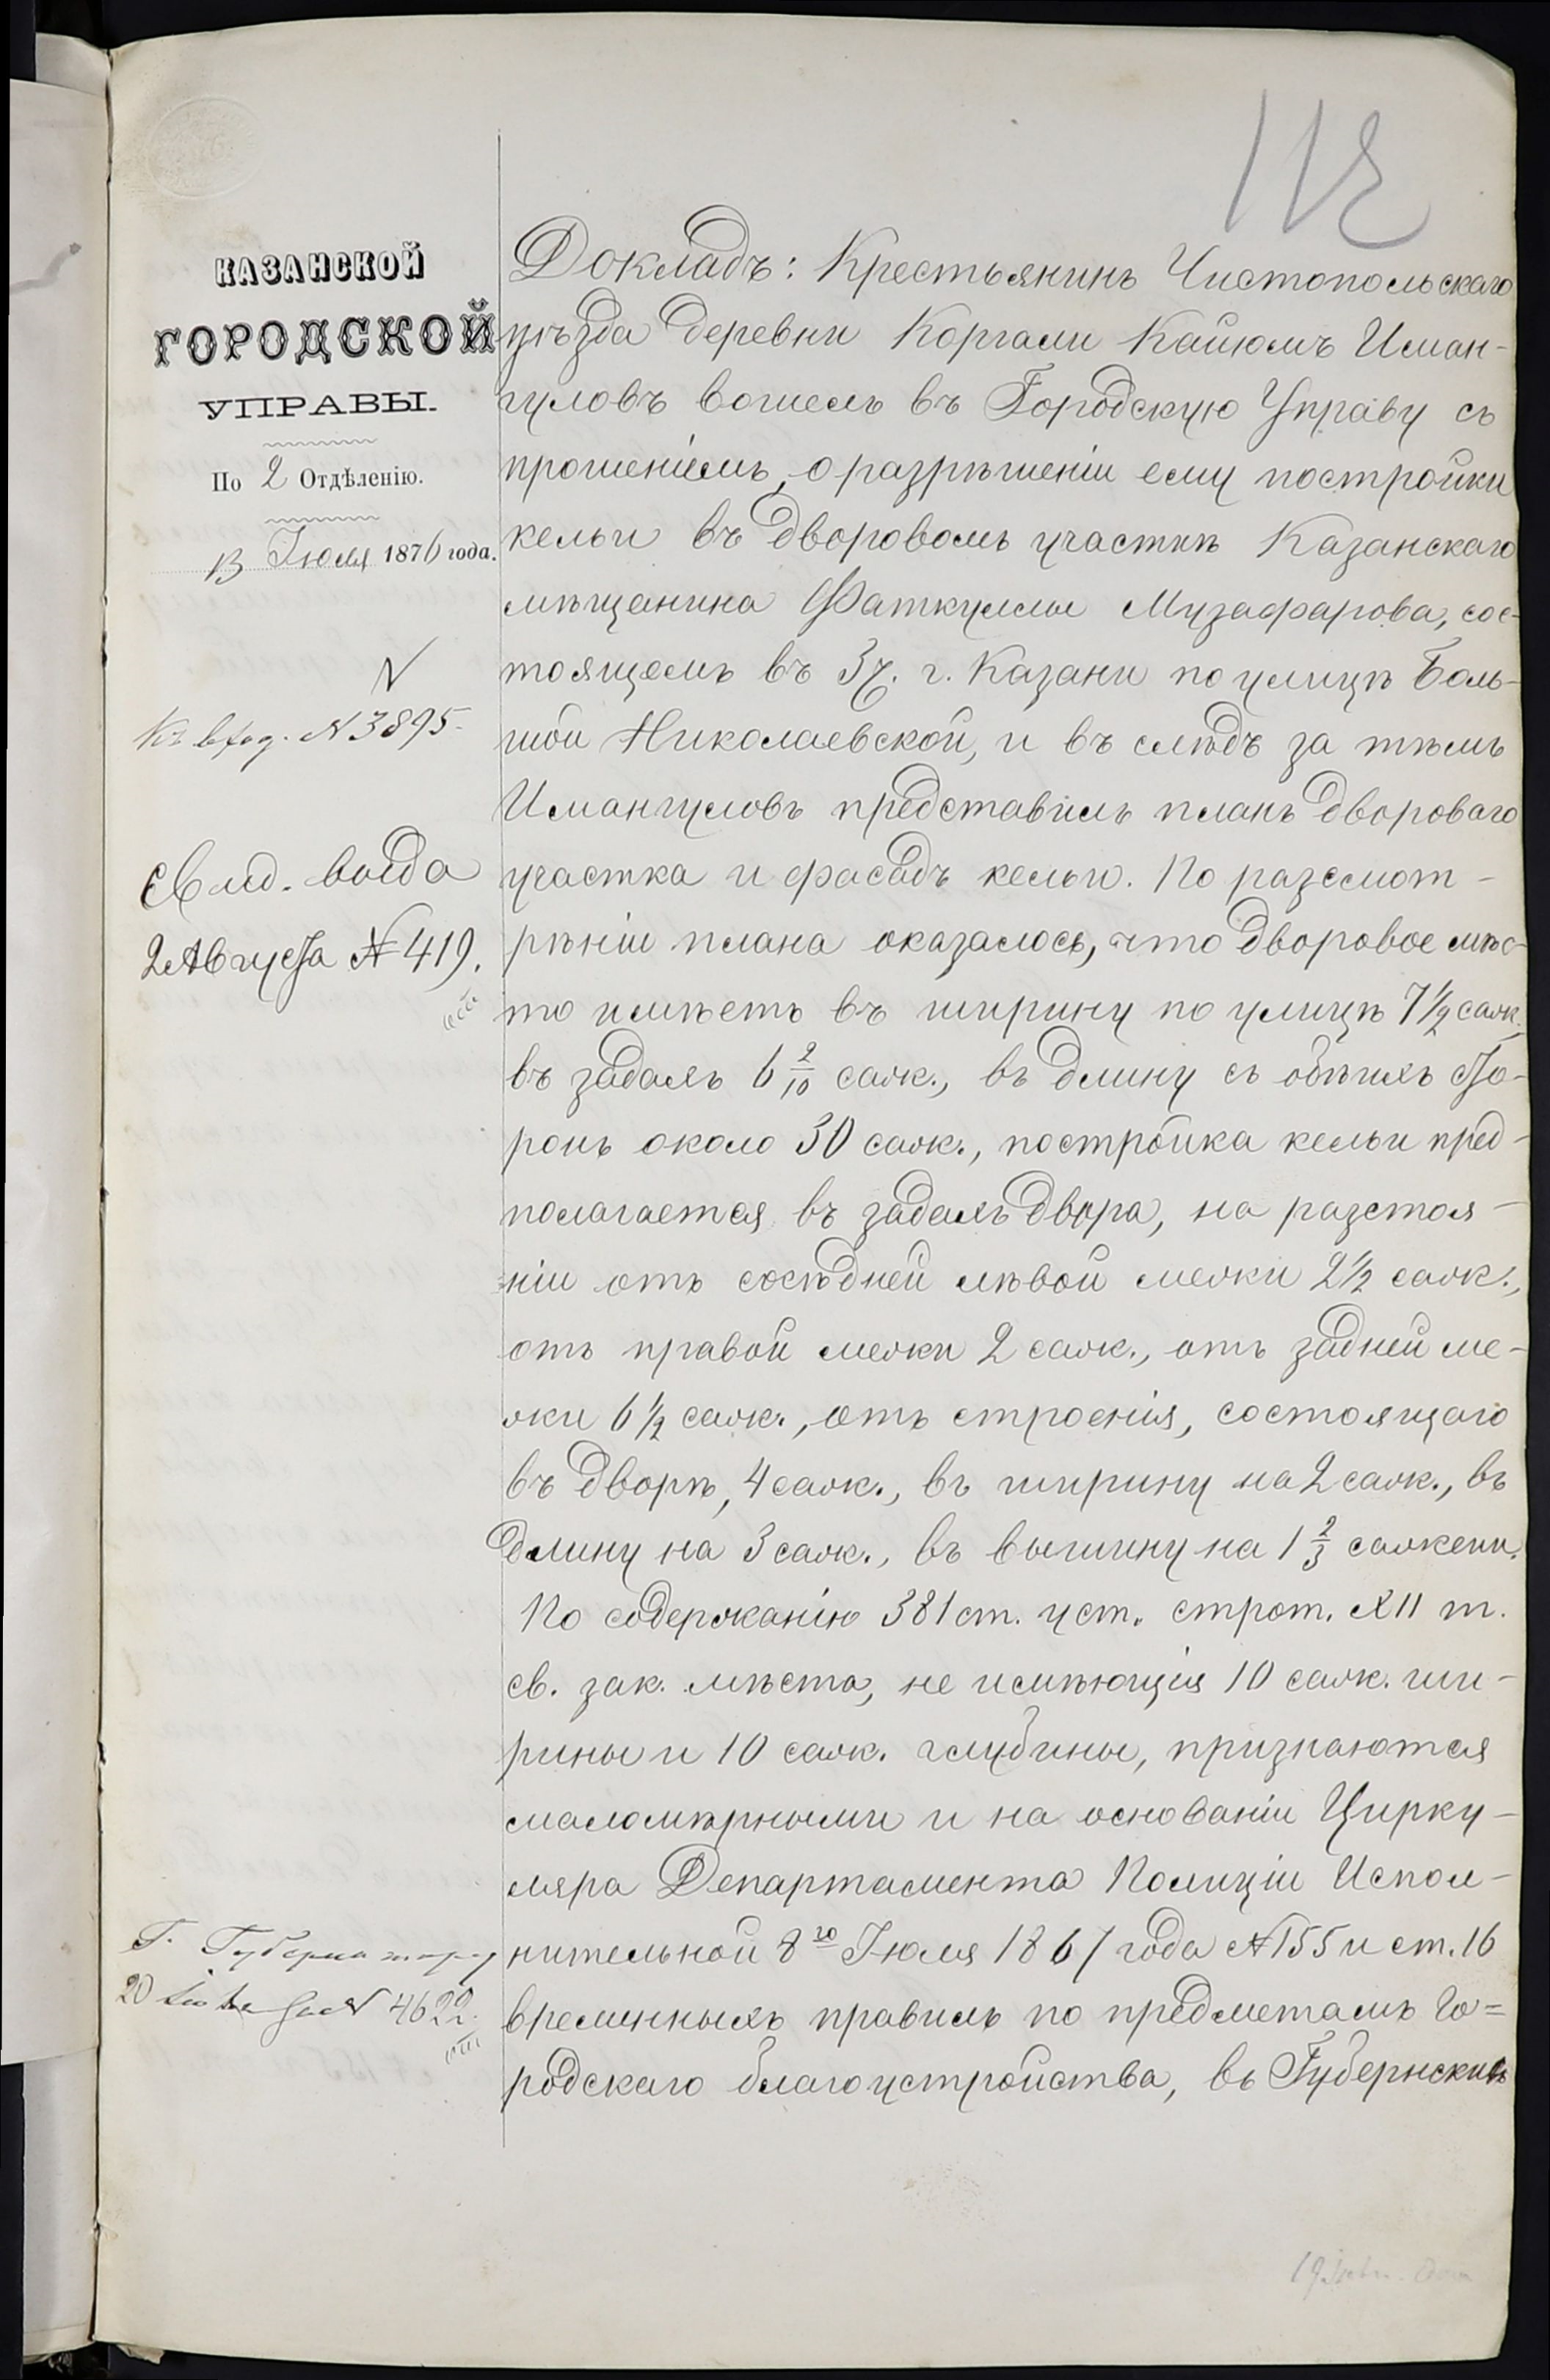 112
КАЗАНСКОЙ
ГОРОДСКОЙ
УПРАВЫ.
По 2 Отдѣленію.
13 Іюля 1876 года.
N
Къ вход. N 3895.
Свид. выда
2 Августа N 419.
Г. Губернатору
20 N 4622.
Докладъ: Крестьянинъ Чистопольскаго
уѣзда деревни Коргали Каюмъ Иман-
гуловъ вошелъ въ Городскую Управу съ
прошеніемъ, о разрѣшеніи ему постройки
кельи въ дворовомъ участкѣ Казанскаго
мѣщанина Фаткуллы Музафарова, сос-
тоящемъ въ 3 ч. г. Казани по улицѣ Боль-
шой Николаевской, и въ слѣдъ за тѣмъ
Имангуловъ представилъ планъ двороваго
участка и фасадъ кельи. По разсмот-
рѣніи плана оказалось, что дворовое мѣс-
то имѣетъ въ ширину по улицѣ 7 1/2 саж.
въ задахъ 6 2/10 саж., въ длину съ обѣихъ сто-
ронъ около 30 саж., постройка кельи пред-
полагается въ задахъ двора, на разстоя-
ніи отъ сосѣдней лѣвой межи 2 1/2 саж.,
отъ правой межи 2 саж., отъ задней ме-
жи 6 1/2 саж., отъ строенія, состоящаго
въ дворѣ, 4 саж., въ ширину на 2 саж., въ
длину на 3 саж., въ вышину на 1 2/3 сажени.
По содержанію 381 ст. уст. строт. XII т.
св. зак. мѣста, не имѣющія 10 саж. ши-
рины и 10 саж. глубины, признаются
маломѣрными и на основаніи Цирку-
ляра Департамента Полиціи Испол-
нительной 8го Іюля 1867 года N 155 и ст. 16
временныхъ правилъ по предметамъ Го=
родскаго благоустройства, въ Губернскихъ